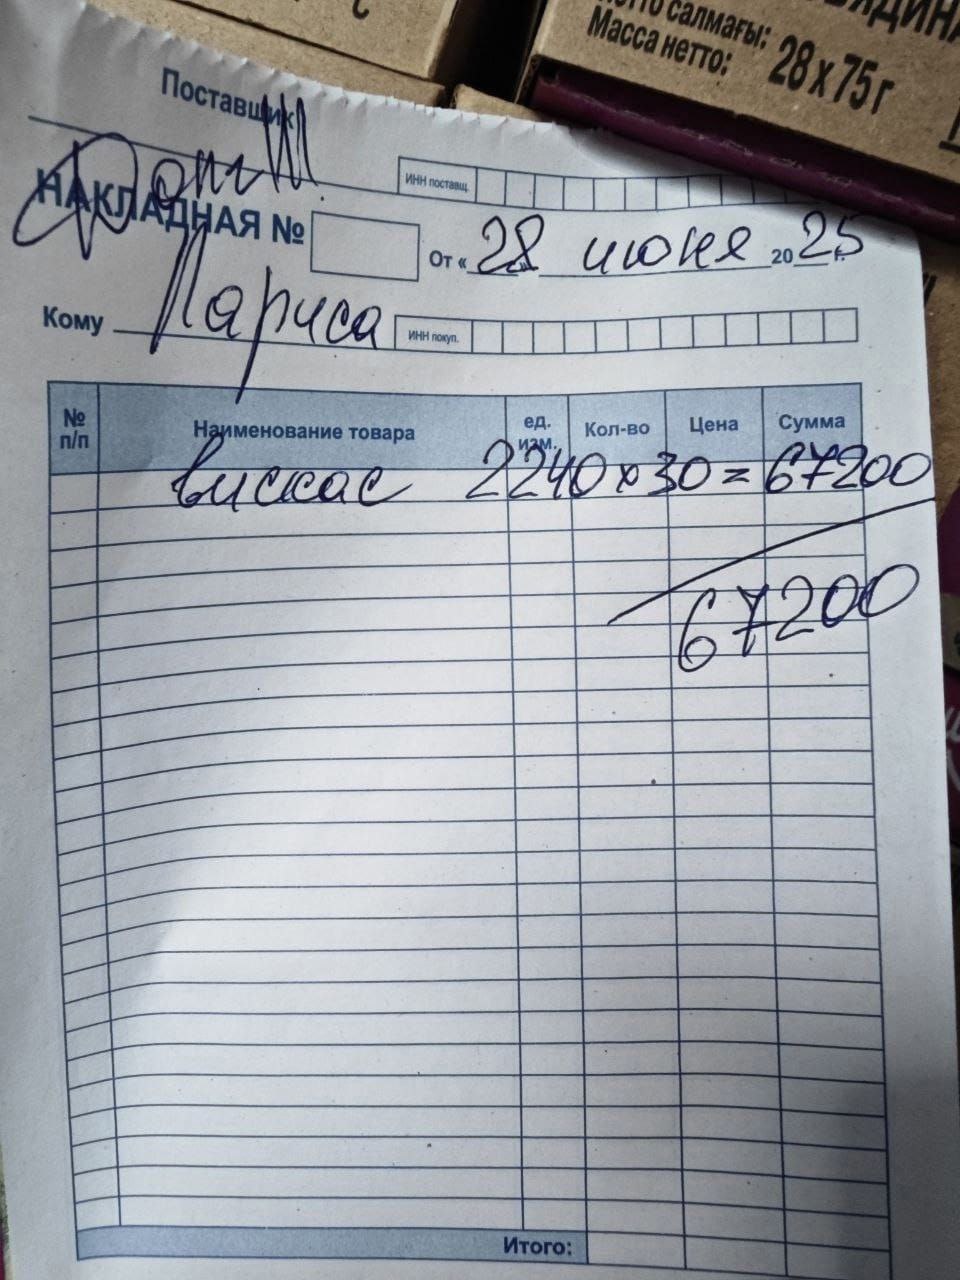 нетто салмағы:
Масса нетто: 28 x 75 г
Поставщик
НАКЛАДНАЯ №
ИНН поставщ.
От « 28 » июня 2025 г.
Кому Лариса
ИНН покуп.
№ п/п Наименование товара ед. изм. Кол-во Цена Сумма
вискас 2240 x 30 = 67200
67200
Итого: